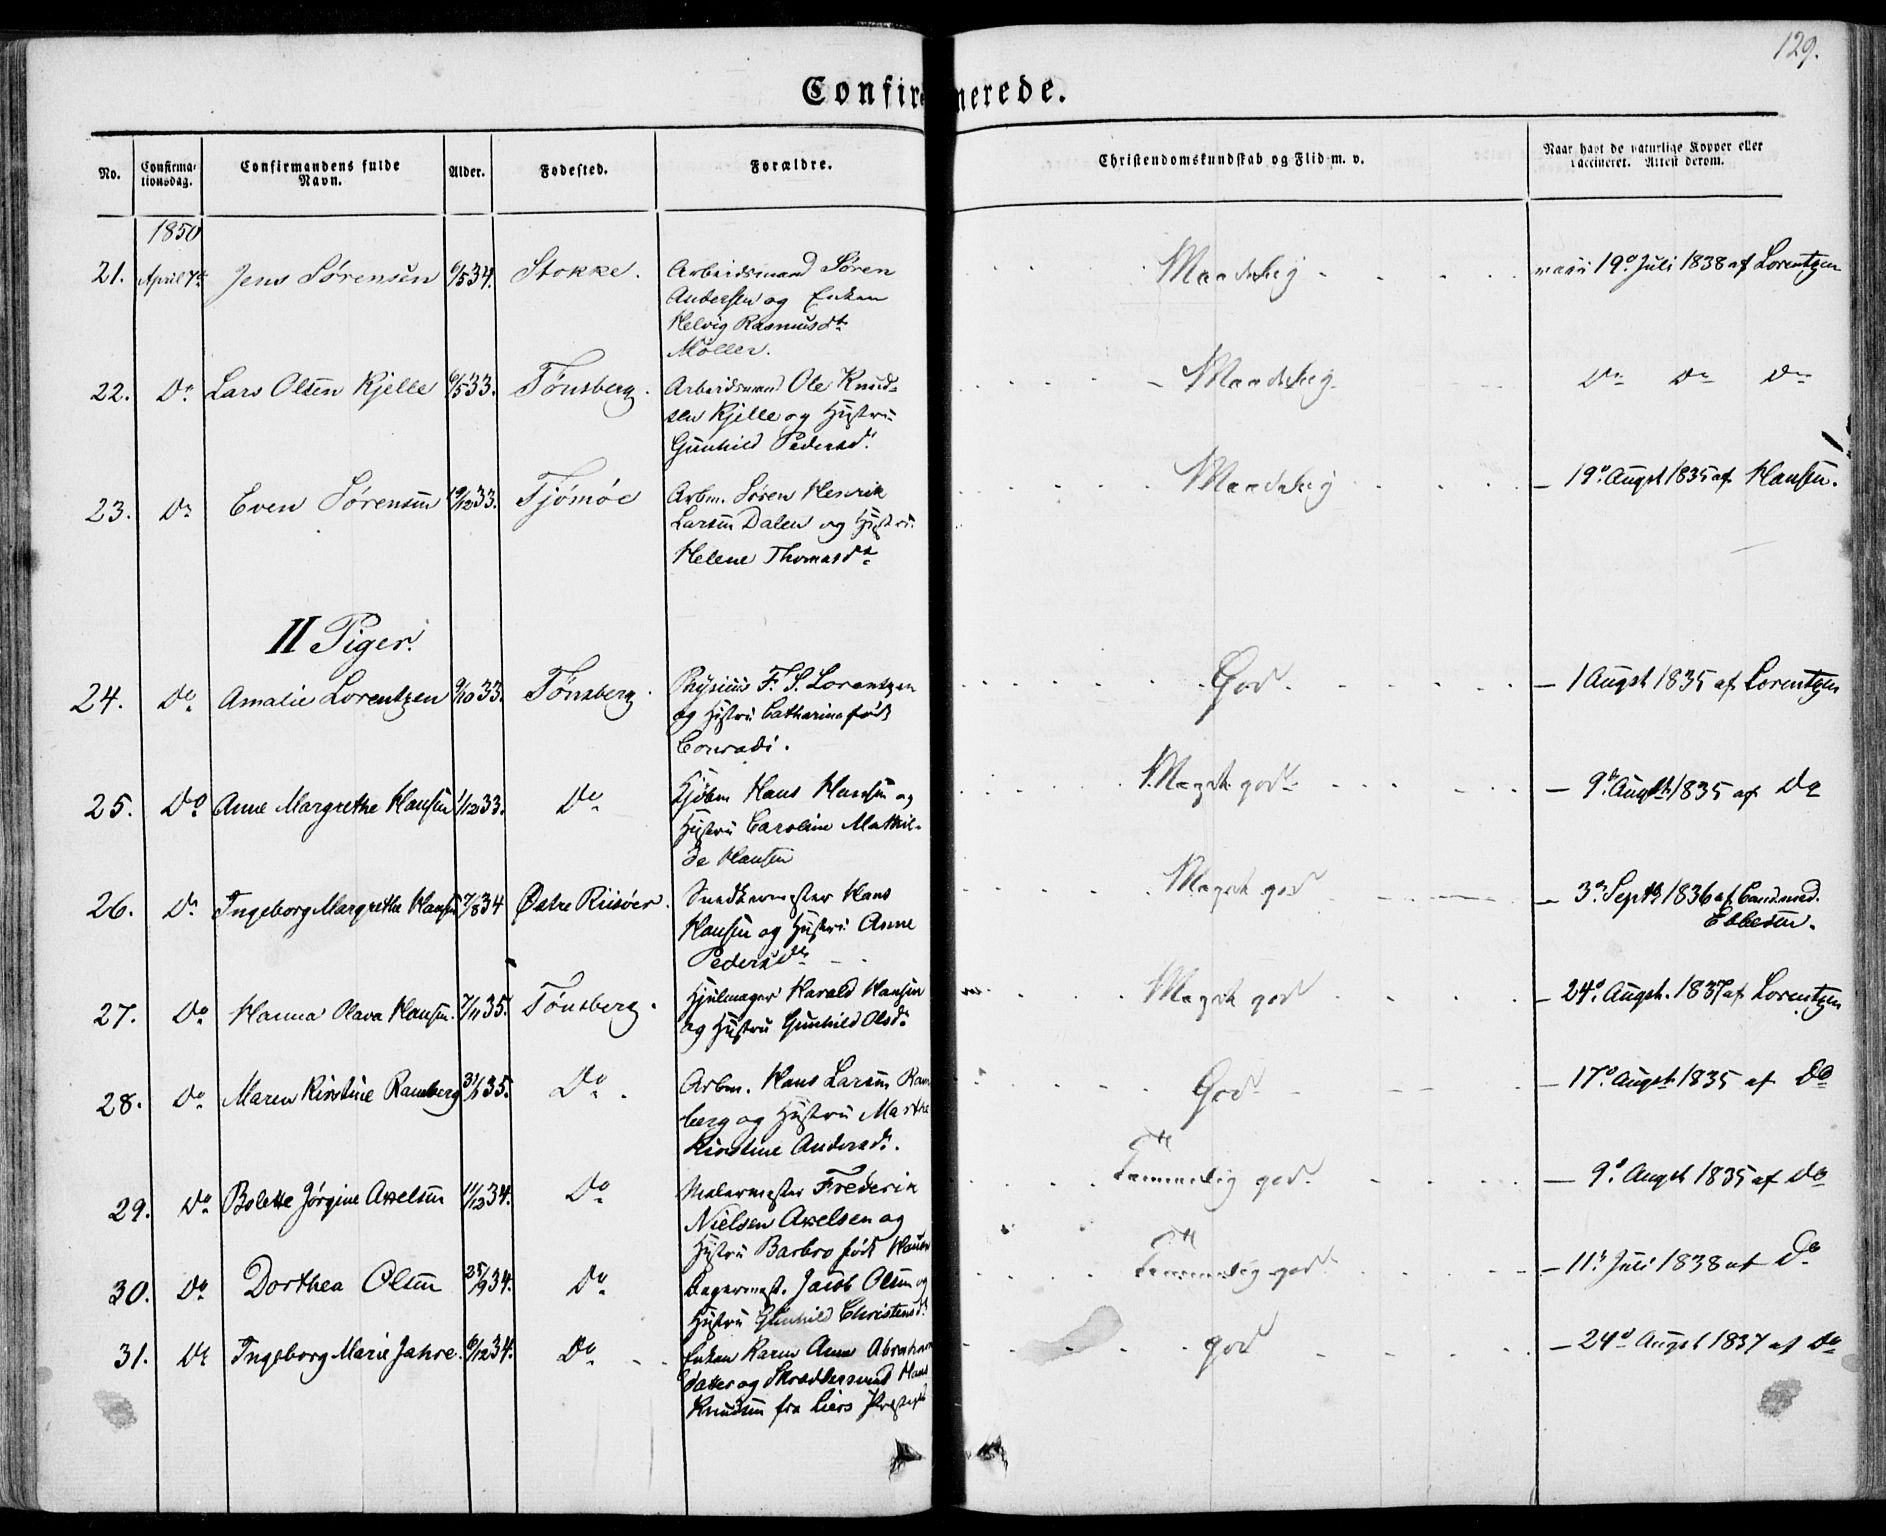 129.
Confirmerede.
No.
Confirma-
tionsdag.
Confirmandens fulde
Navn.
Alder.
Fødested.
Forældre.
Christendomskundskab og Flid m. v.
Naar havt de naturlige Kopper eller
vaccineret. Attest derom.
1850
21. April 7de Jens Sørensen 6/5 34. Stokke. Arbeidsmand Søren Maadelig 19de Juli 1838 af Lorentzen
Andersen og Enken
Helvig Rasmusdt.
Møller.
22. Do Lars Olsen Kjelle 6/5 33. Tønsberg. Arbeidsmand Ole Knud- Maadelig Do Do Do
sen Kjelle og Hustru
Gunhild Pedersd.
23. Do Even Sørensen 19/12 33. Tjömöe Arbm. Søren Henrik Maadelig – 19de Augst 1835 af Hansen.
Larsen Dalen og Hustru
Helene Thomasdt.
II Piger.
24. Do Amalie Lorentzen 9/10 33. Tønsberg. Physicus F. S. Lorentzen God. – 1 Augst 1835 af Lorentzen
og Hustru Catharina født
Conradi.
25. Do Anne Margrethe Hansen 1/12 33. Do Kjøbm Hans Hansen og Meget god – 9de Augst 1835 af Do
Hustru Caroline Mathil-
de Hansen
26. Do Ingeborg Margrethe Hansen 7/8 34 Østre Riisøer. Snedkermester Hans Meget god – 3de Septbr 1836 af Cand. med.
Ebbesen.
Hansen og Hustru Anne
Pedersdt.
27. Do Hanna Olava Hansen. 7/11 35. Tønsberg. Hjulmager Harald Hansen Meget god – 24de Augst. 1837 af Lorentzen
og Hustru Gunhild Olsd.
28. Do Maren Kirstine Ramberg 31/1 35. Do. Arbm. Hans Larsen Ram God – 17de Augst 1835 af Do
berg og Hustru Marthe
Kirstine Andersd.
29. Do Bolette Jørgine Axelsen 11/12 34. Do Malermester Frederik Temmelig god – 9de Augst 1835 af Do
Nielsen Axelsen og
Hustru Barbro født
30. Do Dorthea Olsen 25/9 34. Do Bagermest. Jacob Olsen og Temmelig god – 11te Juli 1838 af Do
Hustru Gunhild Christensd.
31. Do Ingeborg Marie Jahre. 6/12 34. Do Enken Karen Anne Abraham god – 24de Augst 1837 af Do
datter og Skræddersvend Hans
Knudsen fra Liers Præstegj